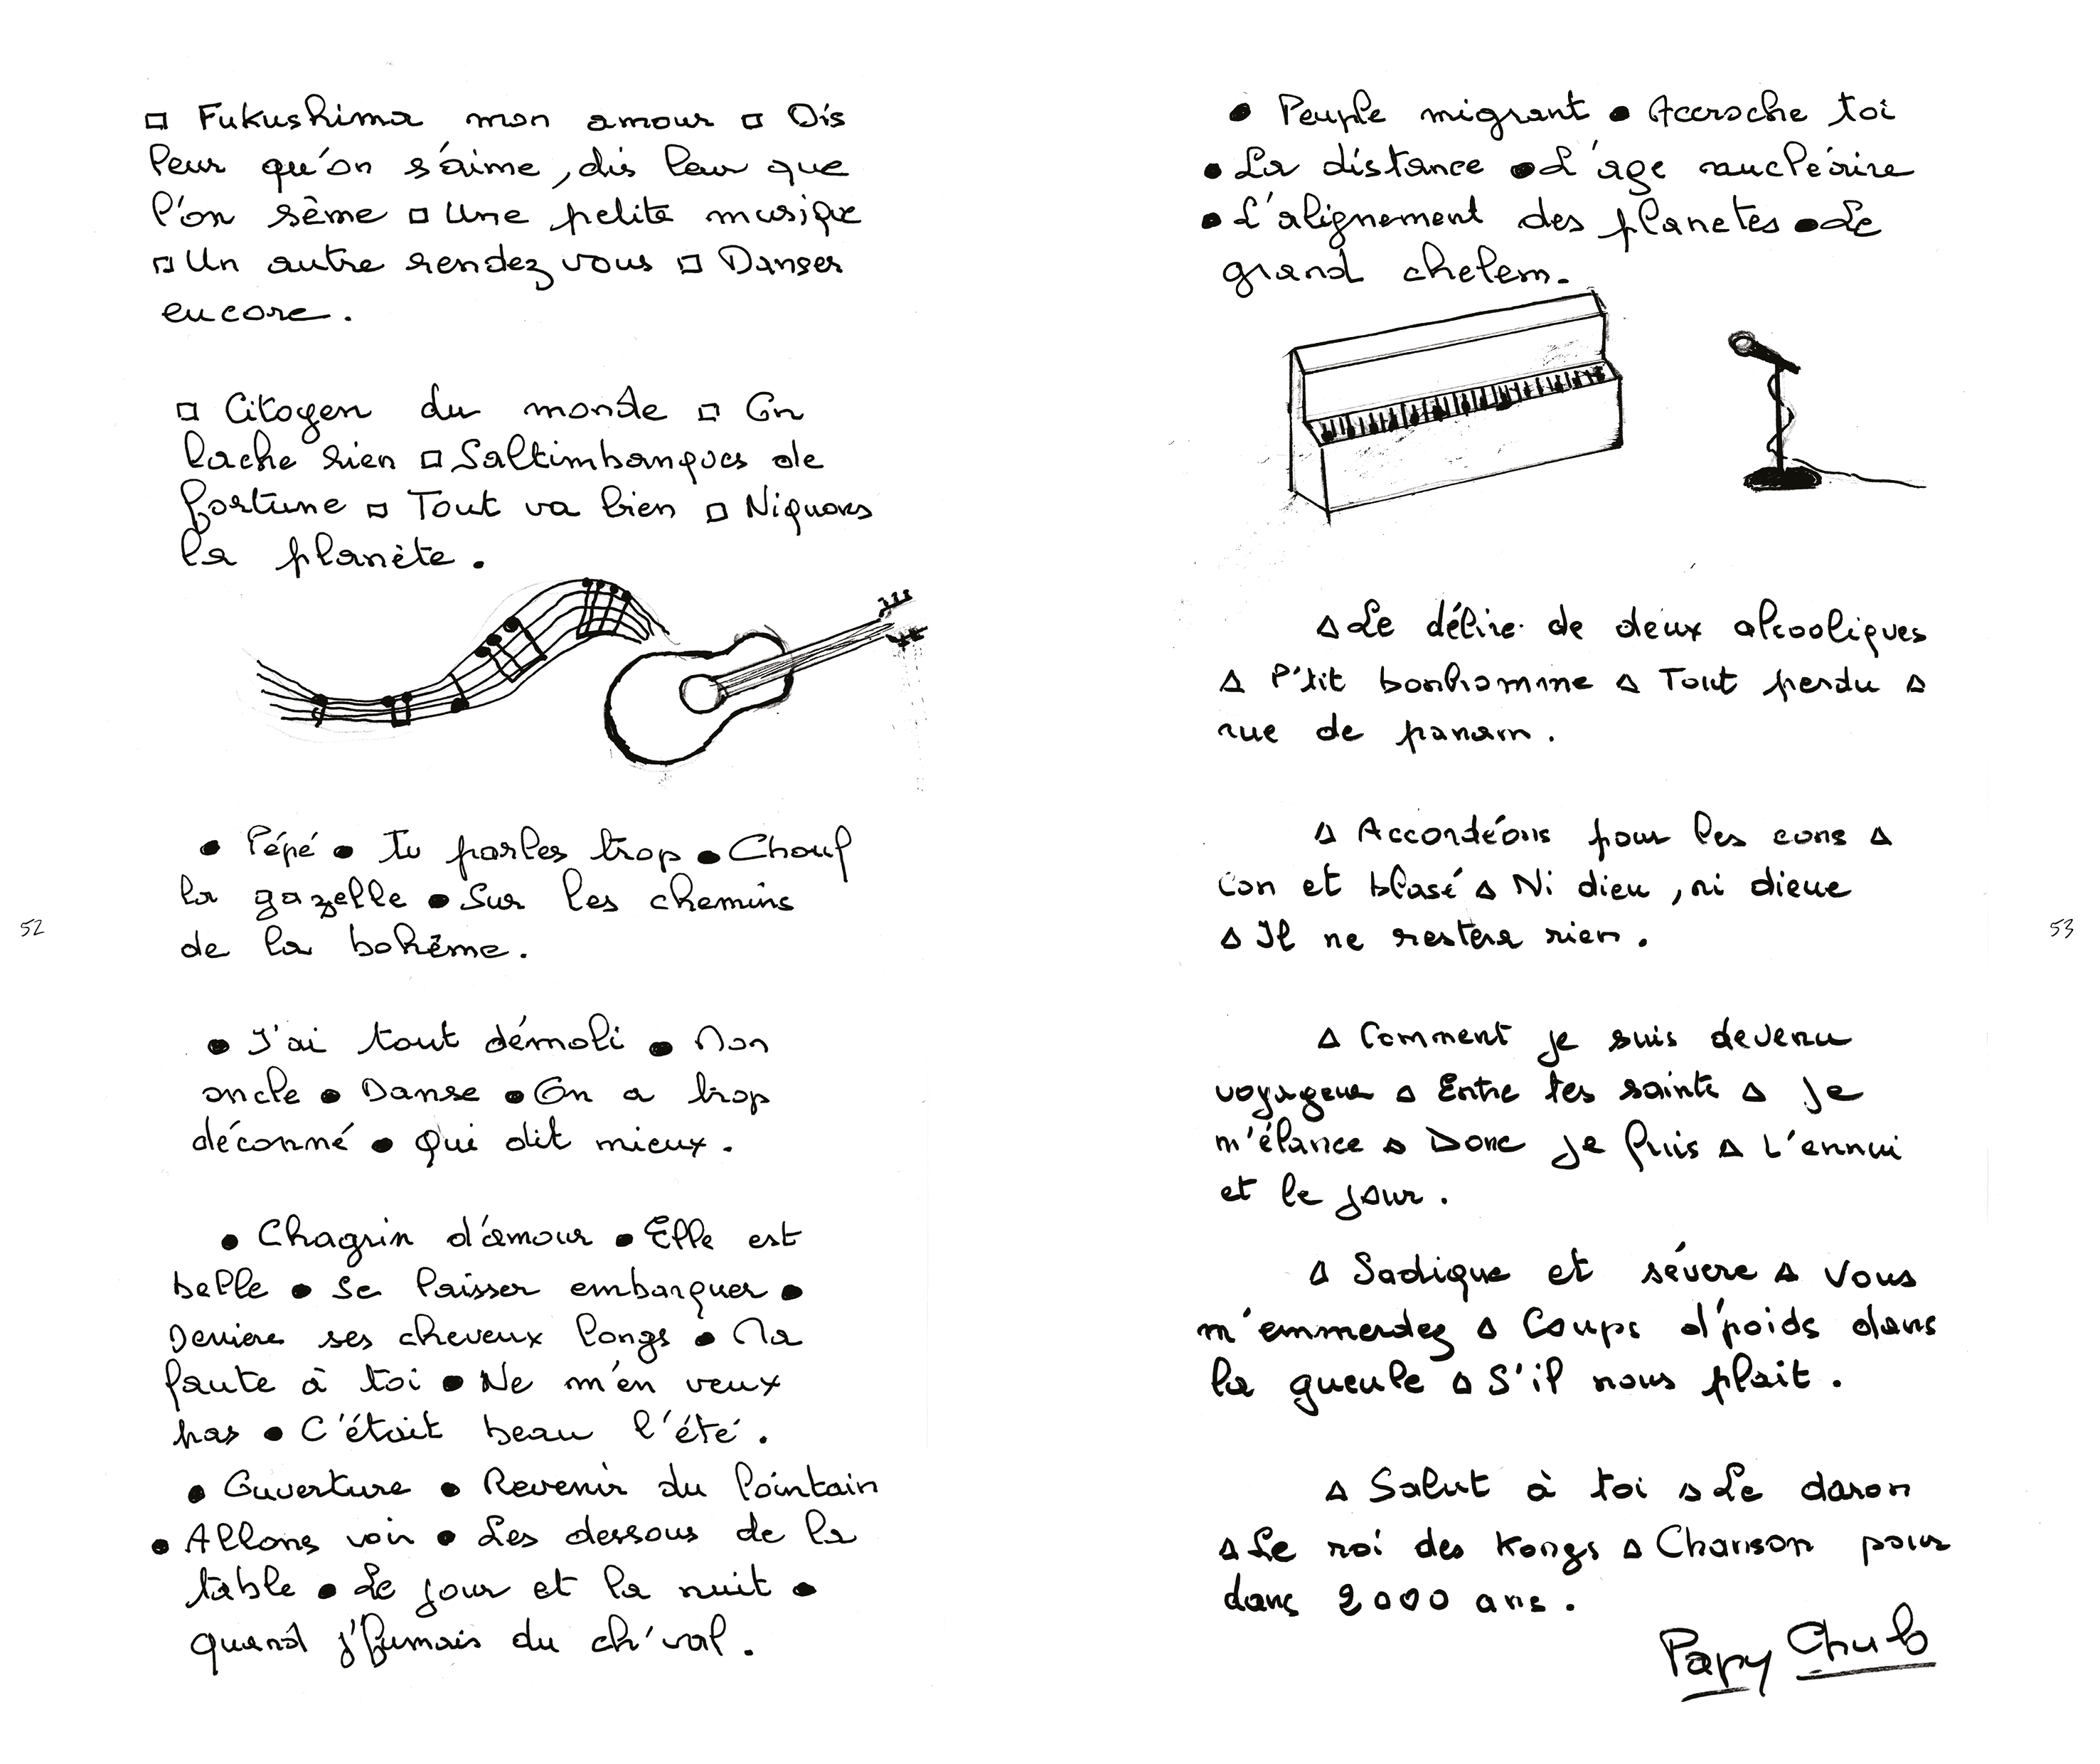 □ Fukushima mon amour □ Dis
leur qu'on s'aime, dis leur que
l'on sème □ Une petite musique
□ Un autre rendez vous □ Danser
encore.
□ Citoyen du monde □ On
lache rien □ Saltimbanques de
fortune □ Tout va bien □ Niquons
la planète.
● Pépé ● Tu parles trop ● Chouf
la gazelle ● Sur les chemins
de la bohême.
● J'ai tout démoli ● Mon
oncle ● Danse ● On a trop
déconné ● Qui dit mieux.
● Chagrin d'amour ● Elle est
belle ● Se laisser embarquer ●
Derriere ses cheveux longs ● Ma
faute à toi ● Ne m'en veux
pas ● C'était beau l'été.
● Ouverture ● Revenir du lointain
● Allons voir ● Les dessous de la
table ● Le jour et la nuit ●
quand j'fumais du ch'val.
52
● Peuple migrant ● Accroche toi
● La distance ● L'age nucléaire
● L'alignement des planetes ● Le
grand chelem.
△ Le délire de deux alcooliques
△ P'tit bonhomme △ Tout perdu △
rue de panam.
△ Accordéons pour les cons △
Con et blasé △ Ni dieu, ni dieue
△ Il ne restera rien.
△ Comment je suis devenu
voyageur △ Entre tes saints △ Je
m'élance △ Donc je fuis △ L'ennui
et le jour.
△ Sadique et sévere △ Vous
m'emmerdez △ Coups d'poids dans
la gueule △ S'il nous plait.
△ Salut à toi △ Le daron
△ Le roi des Kongs △ Chanson pour
dans 2000 ans.
Papy Chulo
53